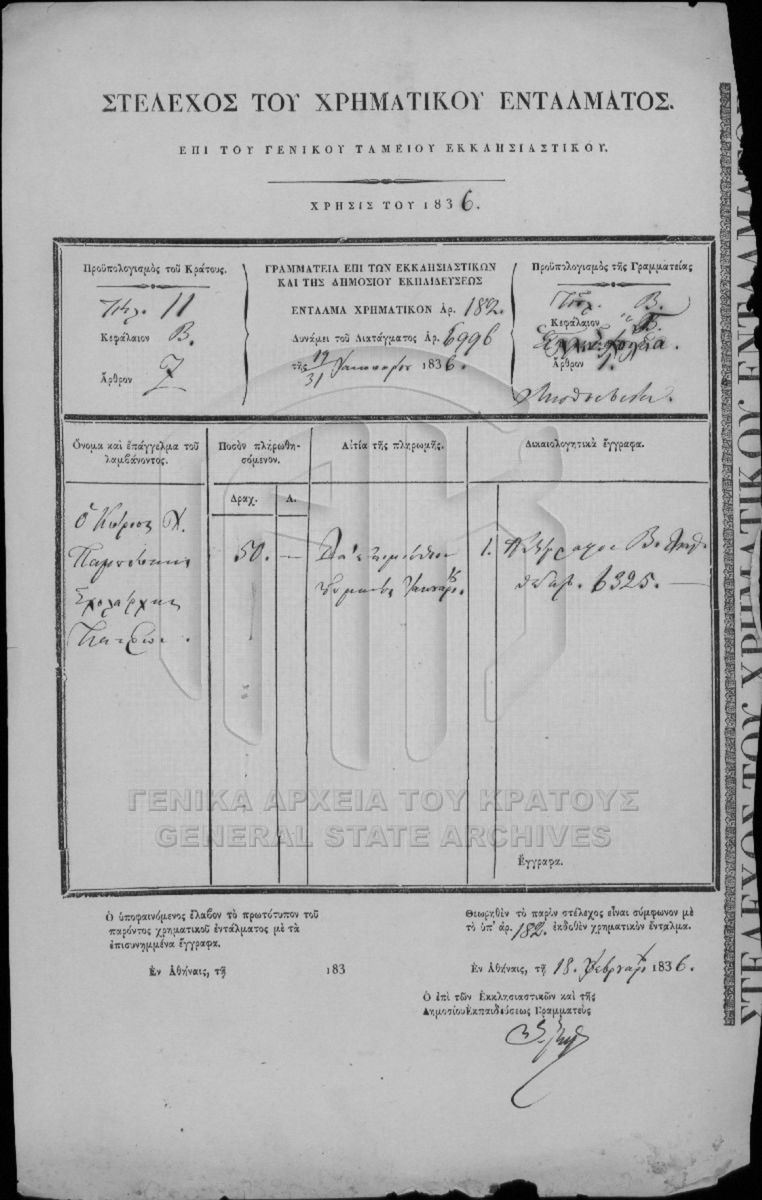 ΣΤΕΛΕΧΟΣ ΤΟΥ ΧΡΗΜΑΤΙΚΟΥ ΕΝΤΑΛΜΑΤΟΣ.
ΕΠΙ ΤΟΥ ΓΕΝΙΚΟΥ ΤΑΜΕΙΟΥ ΕΚΚΛΗΣΙΑΣΤΙΚΟΥ.
ΧΡΗΣΙΣ ΤΟΥ 1836.
Προϋπολογισμὸς τοῦ Κράτους.
Τίτλ. 11
Κεφάλαιον Β.
Ἄρθρον 7
ΓΡΑΜΜΑΤΕΙΑ ΕΠΙ ΤΩΝ ΕΚΚΛΗΣΙΑΣΤΙΚΩΝ
ΚΑΙ ΤΗΣ ΔΗΜΟΣΙΟΥ ΕΚΠΑΙΔΕΥΣΕΩΣ
ΕΝΤΑΛΜΑ ΧΡΗΜΑΤΙΚΟΝ ΑΡ. 182.
Δυνάμει τοῦ Διατάγματος ΑΡ. 6996
τῆς 19/31 Ἰαννουαρίου 1836.
Προϋπολογισμὸς τῆς Γραμματείας
Τίτλ. Β.
Κεφάλαιον Β.
Ἄρθρον 1.
Ὄνομα καὶ ἐπάγγελμα τοῦ
λαμβάνοντος.
Ποσὸν πληρωθη-
σόμενον.
Αἰτία τῆς πληρωμῆς.
Δικαιολογητικὰ ἔγγραφα.
Δραχ. Λ.
Ὁ Κύριος Χ.
Παμπούκης
Σχολάρχης
Πατρῶν.
50. —
1. Β. 6325. —
Ἔγγραφα.
Ὁ ὑποφαινόμενος ἔλαβον τὸ πρωτότυπον τοῦ
παρόντος χρηματικοῦ ἐντάλματος μὲ τὰ
ἐπισυνημμένα ἔγγραφα.
Ἐν Ἀθήναις, τῇ 183
Θεωρηθὲν τὸ παρὸν στέλεχος εἶναι σύμφωνον μὲ
τὸ ὑπ' ἀρ. 182. ἐκδοθὲν χρηματικὸν ἔνταλμα.
Ἐν Ἀθήναις, τῇ 18. Φεβρουαρ. 1836.
Ὁ ἐπὶ τῶν Ἐκκλησιαστικῶν καὶ τῆς
Δημοσίου Ἐκπαιδεύσεως Γραμματεὺς
ΓΕΝΙΚΑ ΑΡΧΕΙΑ ΤΟΥ ΚΡΑΤΟΥΣ
GENERAL STATE ARCHIVES
ΣΤΕΛΕΧΟΣ ΤΟΥ ΧΡΗΜΑΤΙΚΟΥ ΕΝΤΑΛΜΑΤΟΣ